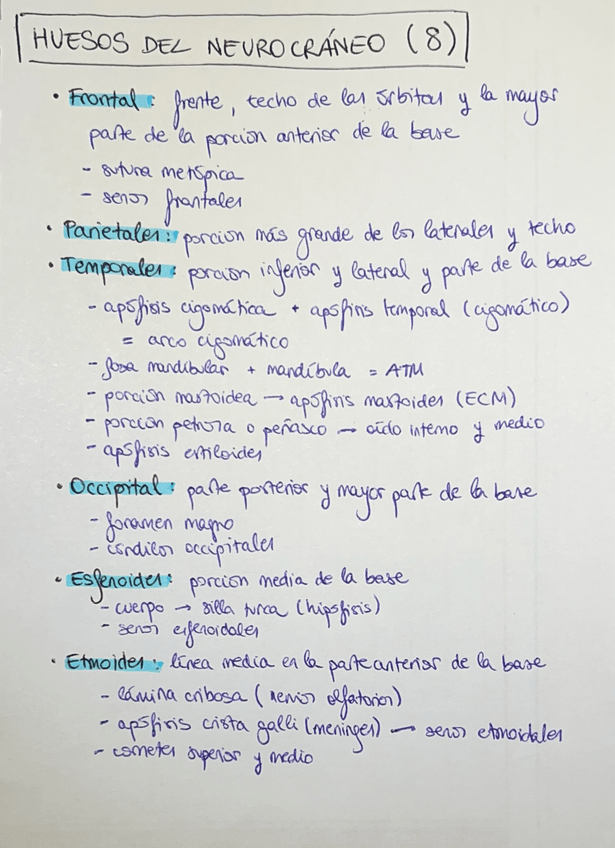 HUESOS DEL NEUROCRÁNEO (8)
• Frontal: frente, techo de las órbitas y la mayor
parte de la porción anterior de la base
- sutura metópica
- senos frontales
• Parietales: porción más grande de los laterales y techo
• Temporales: porción inferior y lateral y parte de la base
- apófisis cigomática + apófisis temporal (cigomático)
= arco cigomático
- fosa mandibular + mandíbula = ATM
- porción mastoidea → apófisis mastoides (ECM)
- porción petrosa o peñasco → oído interno y medio
- apófisis estiloides
• Occipital: parte posterior y mayor parte de la base
- foramen magno
- cóndilos occipitales
• Esfenoides: porción media de la base
- cuerpo → silla turca (hipófisis)
- senos esfenoidales
• Etmoides: línea media en la parte anterior de la base
- lámina cribosa (nervios olfatorios)
- apófisis crista galli (meninges) → senos etmoidales
- cornetes superior y medio